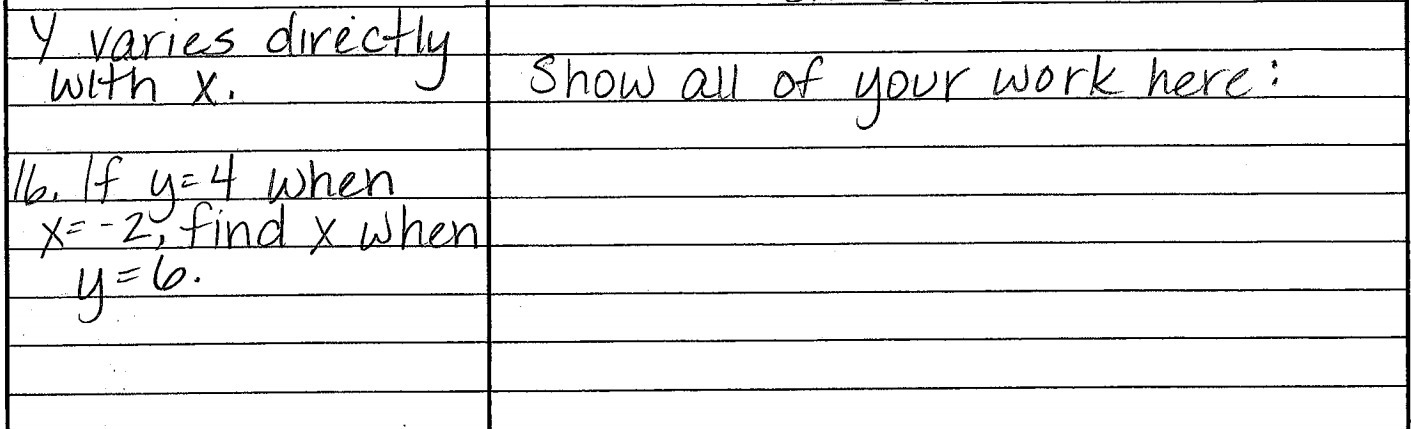 Y varies directly
with x.
Show all of your work here:
16. If y=4 when
x=-2, find x when
y=6.